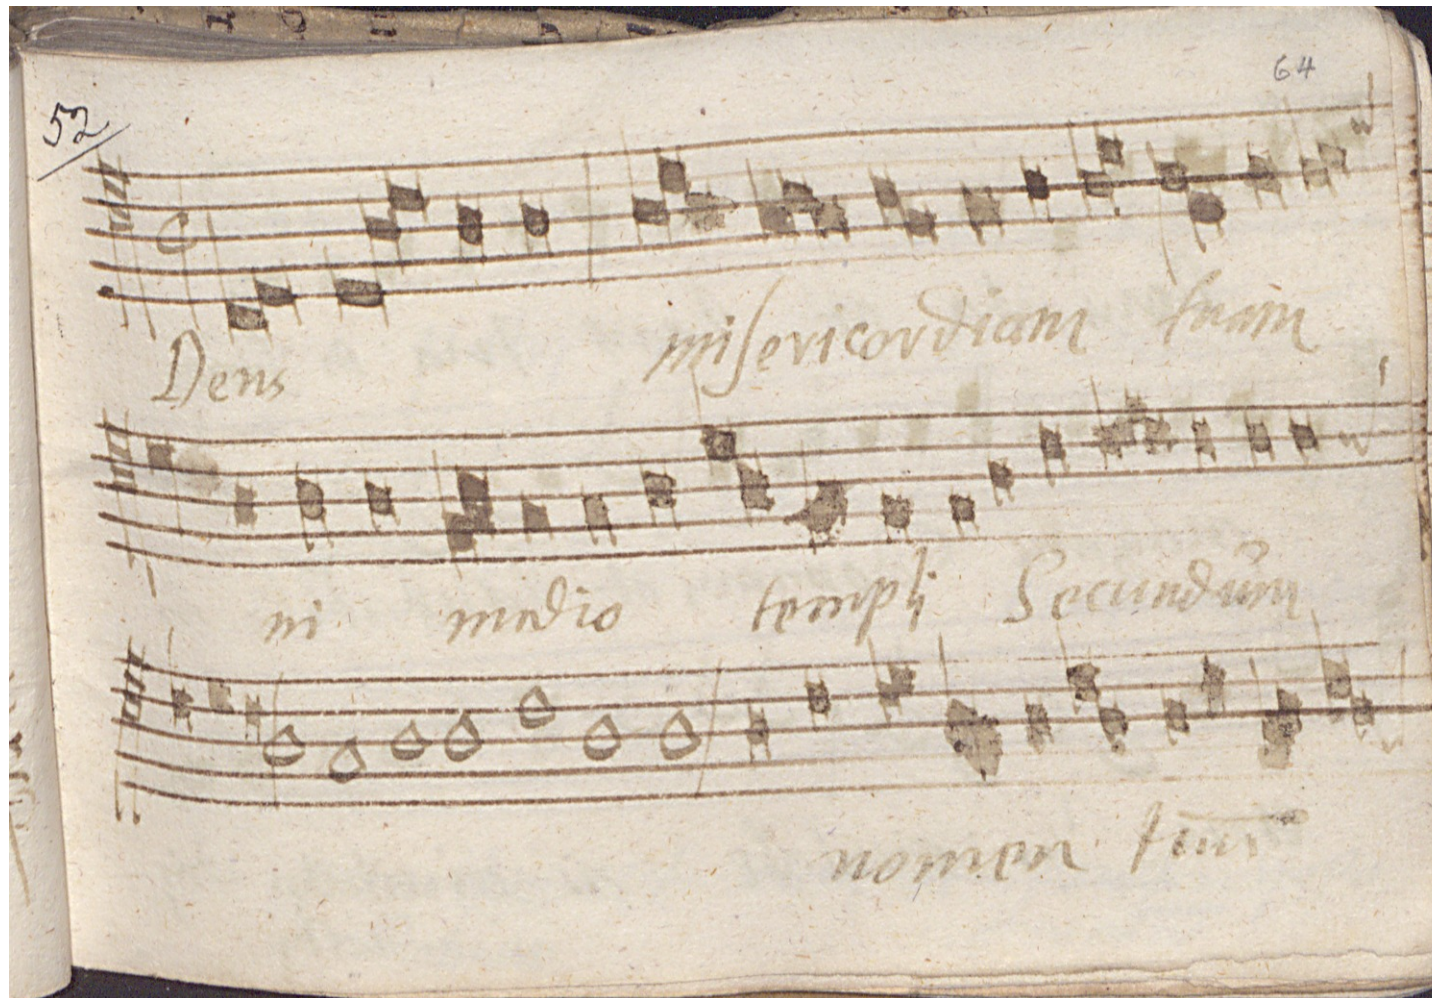 64
52
Deus misericordiam tuam
in medio templi Secundum
nomen tuū